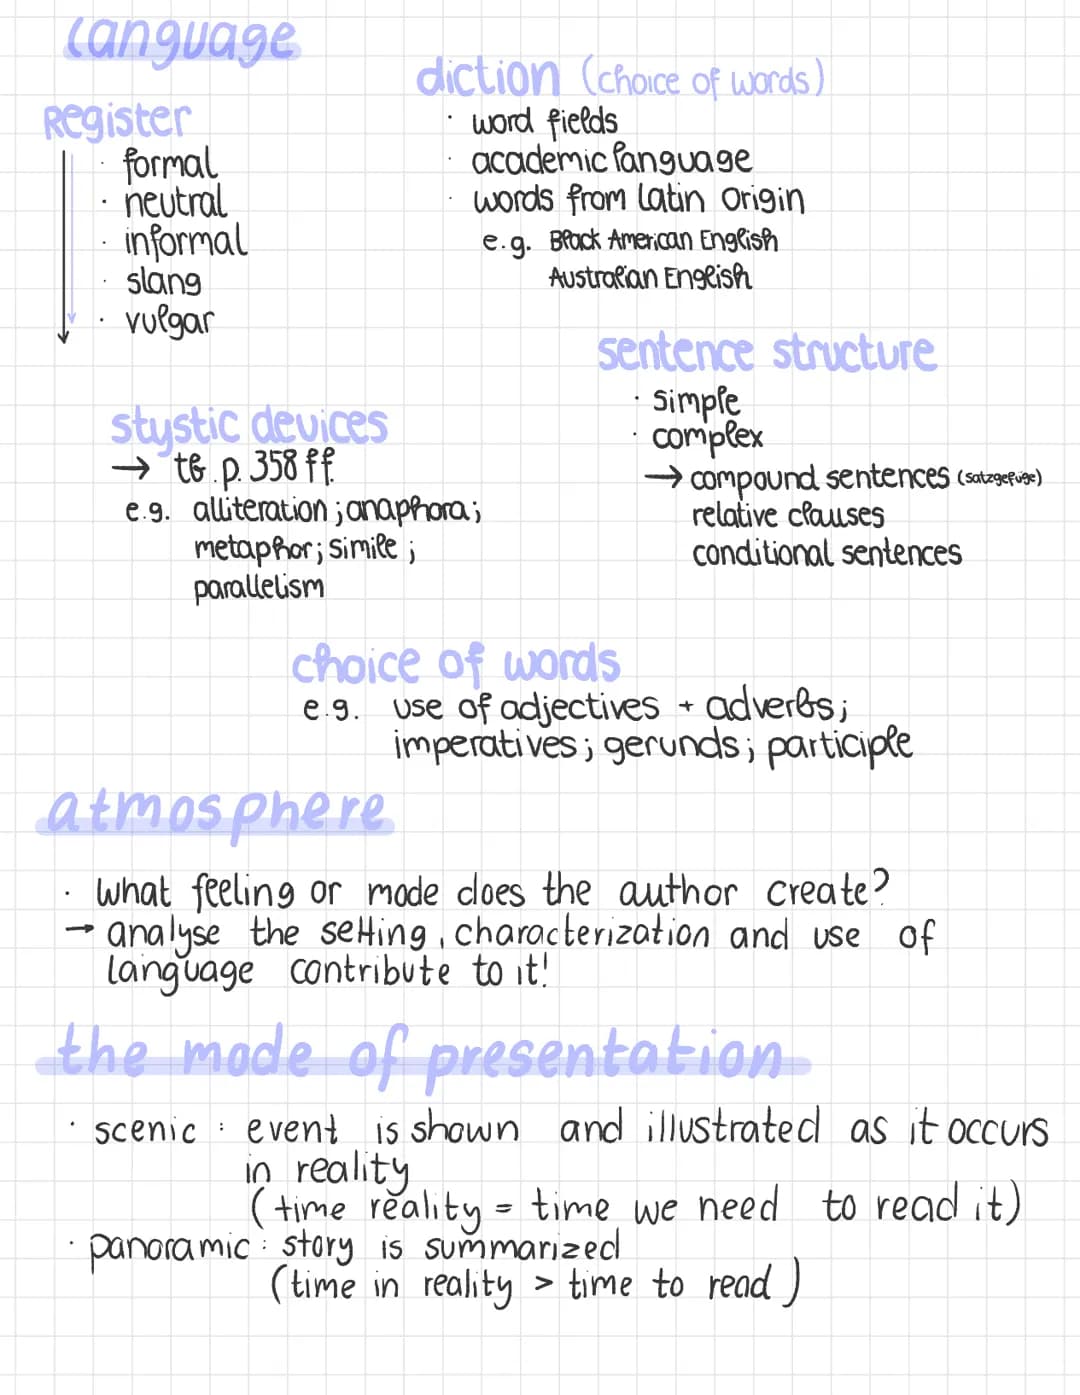 language
Register
· formal
· neutral
· informal
· slang
· vulgar
diction (choice of words)
· word fields
· academic language
· words from Latin Origin
e.g. Black American English
Australian English
sentence structure
· simple
· complex
→ compound sentences (Satzgefüge)
relative clauses
conditional sentences
stystic devices
→ tb p. 358 ff.
e.g. alliteration; anaphora;
metaphor; simile;
parallelism
choice of words
e.g. use of adjectives + adverbs;
imperatives; gerunds; participle
atmosphere
· what feeling or mode does the author create?
→ analyse the setting, characterization and use of
language contribute to it!
the mode of presentation
· scenic : event is shown and illustrated as it occurs
in reality
(time reality = time we need to read it)
· panoramic : story is summarized
(time in reality > time to read)